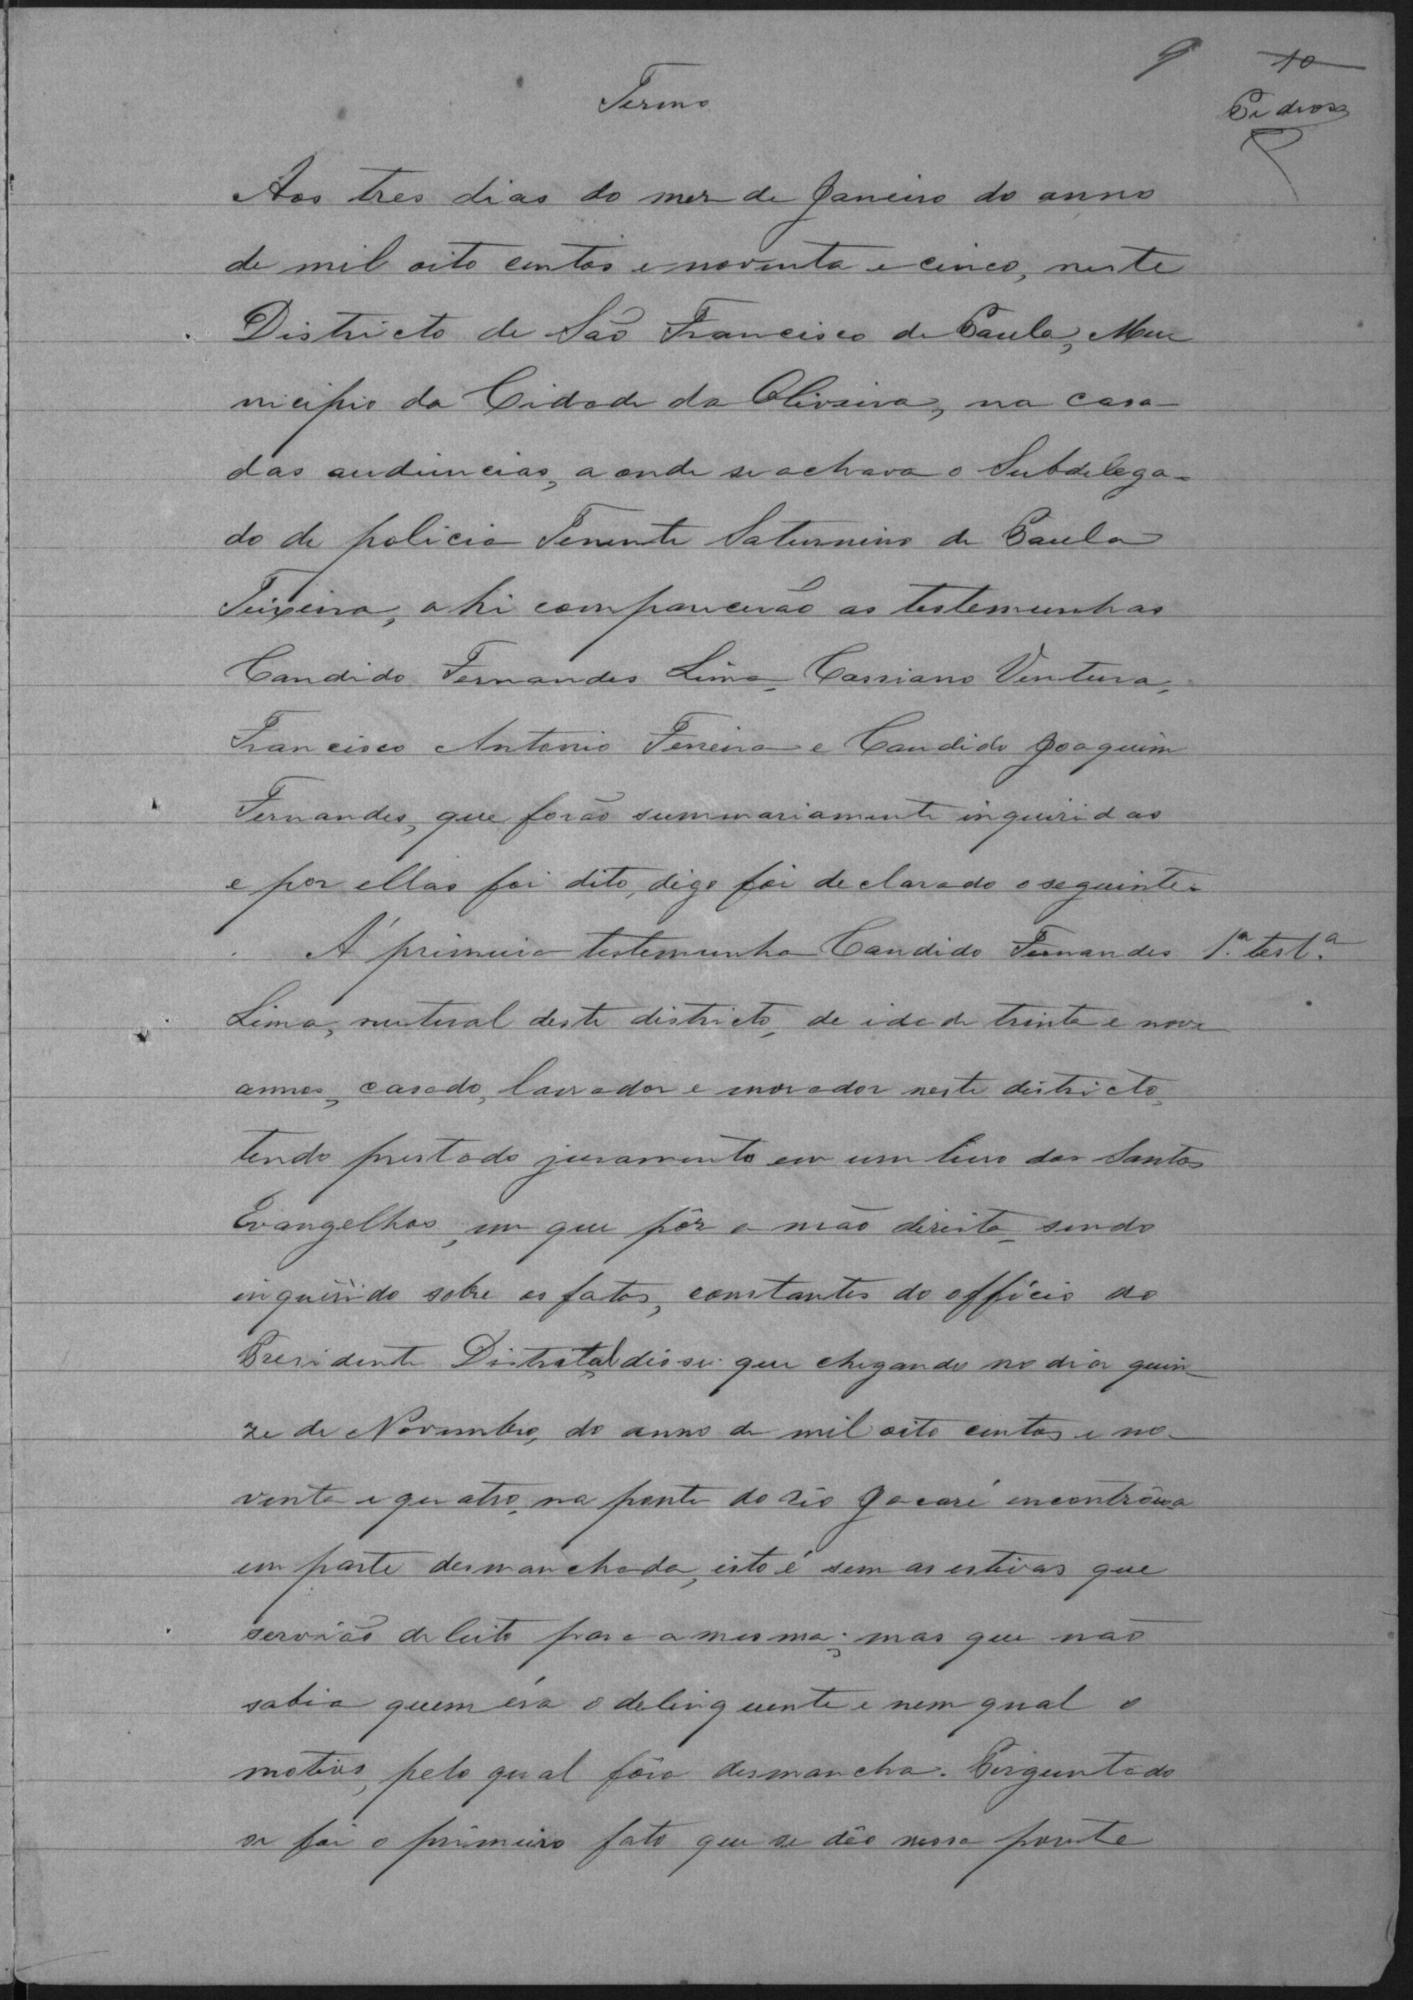 9 10
Pedrosa
Termo
Aos tres dias do mez de Janeiro do anno
de mil oito centos e noventa e cinco, neste
Districto de São Francisco de Paula, Mu
nicipio da Cidade da Oliveira, na casa
das audiencias, a onde se achava o Subdelega-
do de policia Tenente Saturnino de Paula
Teixeira, ahi comparecerão as testemunhas
Candido Fernandes Lima, Cassiano Ventura,
Francisco Antonio Ferreira e Candido Joaquim
Fernandes, que forão summariamente inquiridas
e por ellas foi dito, digo foi declarado o seguinte.
A' primeira testemunha Candido Fernandes 1.ª test.ª
Lima, natural deste districto, de idade trinta e nove
annos, casado, lavrador e morador neste districto,
tendo prestado juramento em um livro dos Santos
Evangelhos, em que pôz a mão direita, sendo
inquirido sobre os fatos, constantes do officio do
Presidente Distratal disse: que chegando no dia quin
ze de Novembro, do anno de mil oito centos e no-
venta e quatro, na ponte do rio Jacaré encontrou-a
em parte desmanchada, isto é sem as estivas que
servião de leito para a mesma; mas que não
sabia quem éra o delinquente e nem qual o
motivo, pelo qual fôra desmancha. Perguntado
se foi o primeiro fato que se dêo nessa ponte